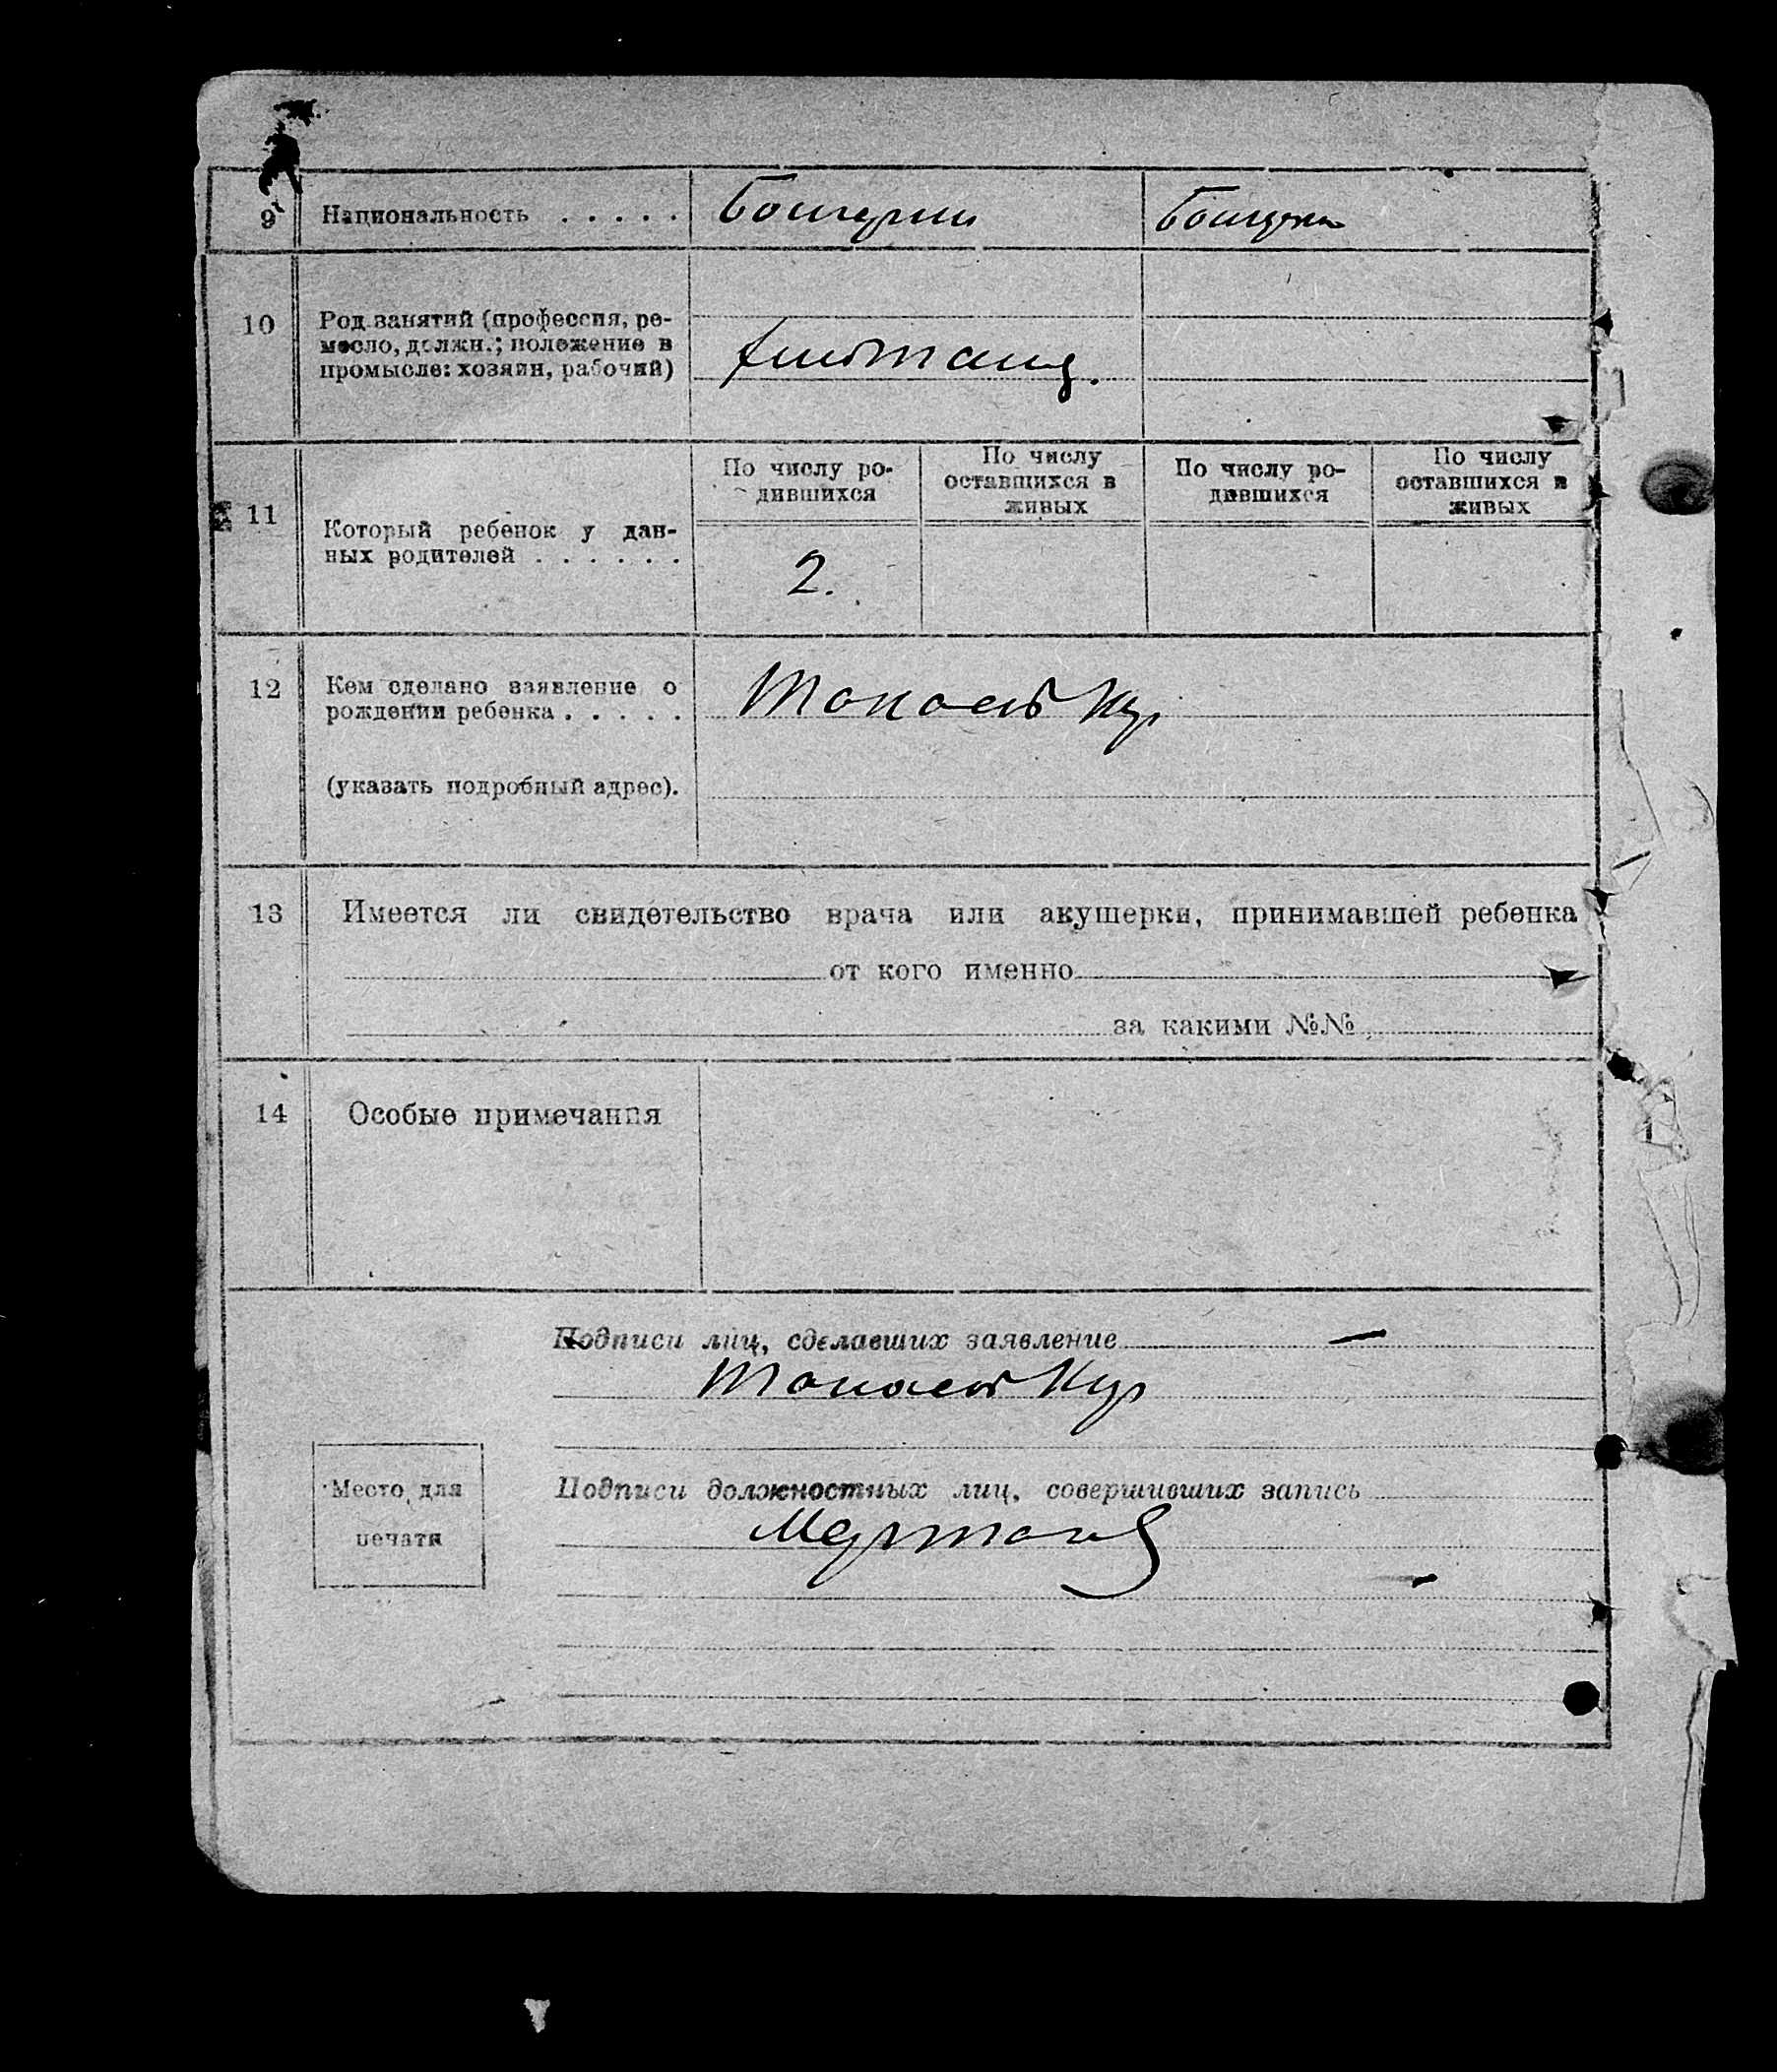 9 Национальность . . . . . Башкурт Башкурт
10 Род занятий (профессия, ре-
месло, должн.; положение в
промысле: хозяин, рабочий)
11 Который ребенок у дан-
ных родителей . . . . . .
По числу ро-
дившихся
По числу
оставшихся в
живых
По числу ро-
дившихся
По числу
оставшихся в
живых
2.
12 Кем сделано заявление о
рождении ребенка . . . . .
(указать подробный адрес).
13 Имеется ли свидетельство врача или акушерки, принимавшей ребенка
от кого именно
за какими №№
14 Особые примечания
Подписи лиц, сделавших заявление
Место для
печати
Подписи должностных лиц, совершивших запись